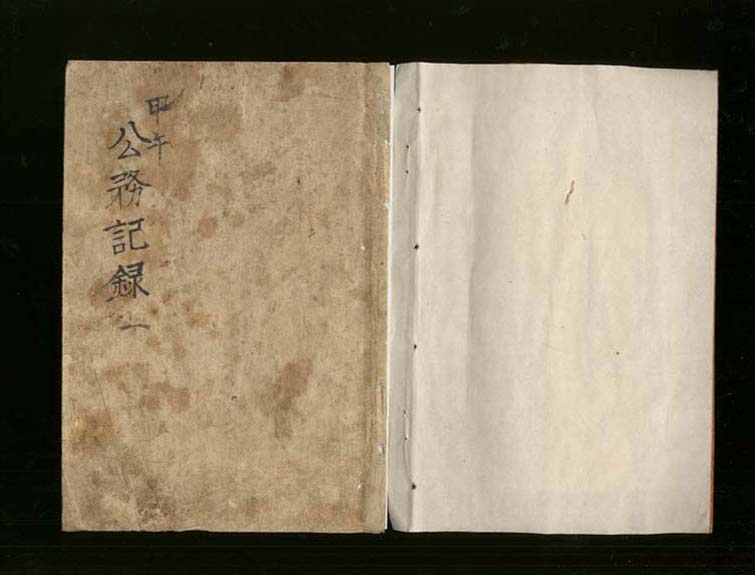 甲午
公務記録一